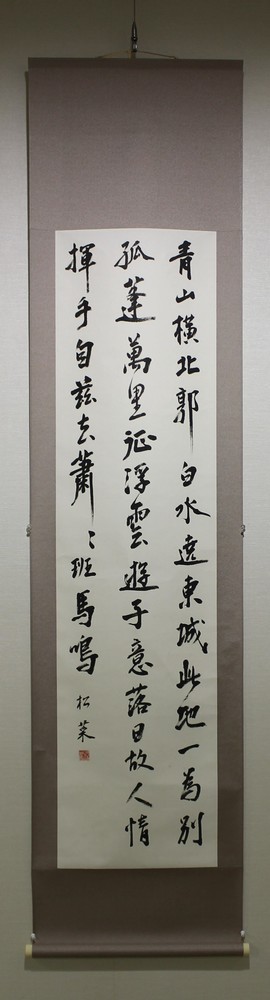 青山横北郭白水遶東城此地一為別
孤蓬萬里征浮雲遊子意落日故人情
揮手自茲去蕭〻班馬鳴
松菜